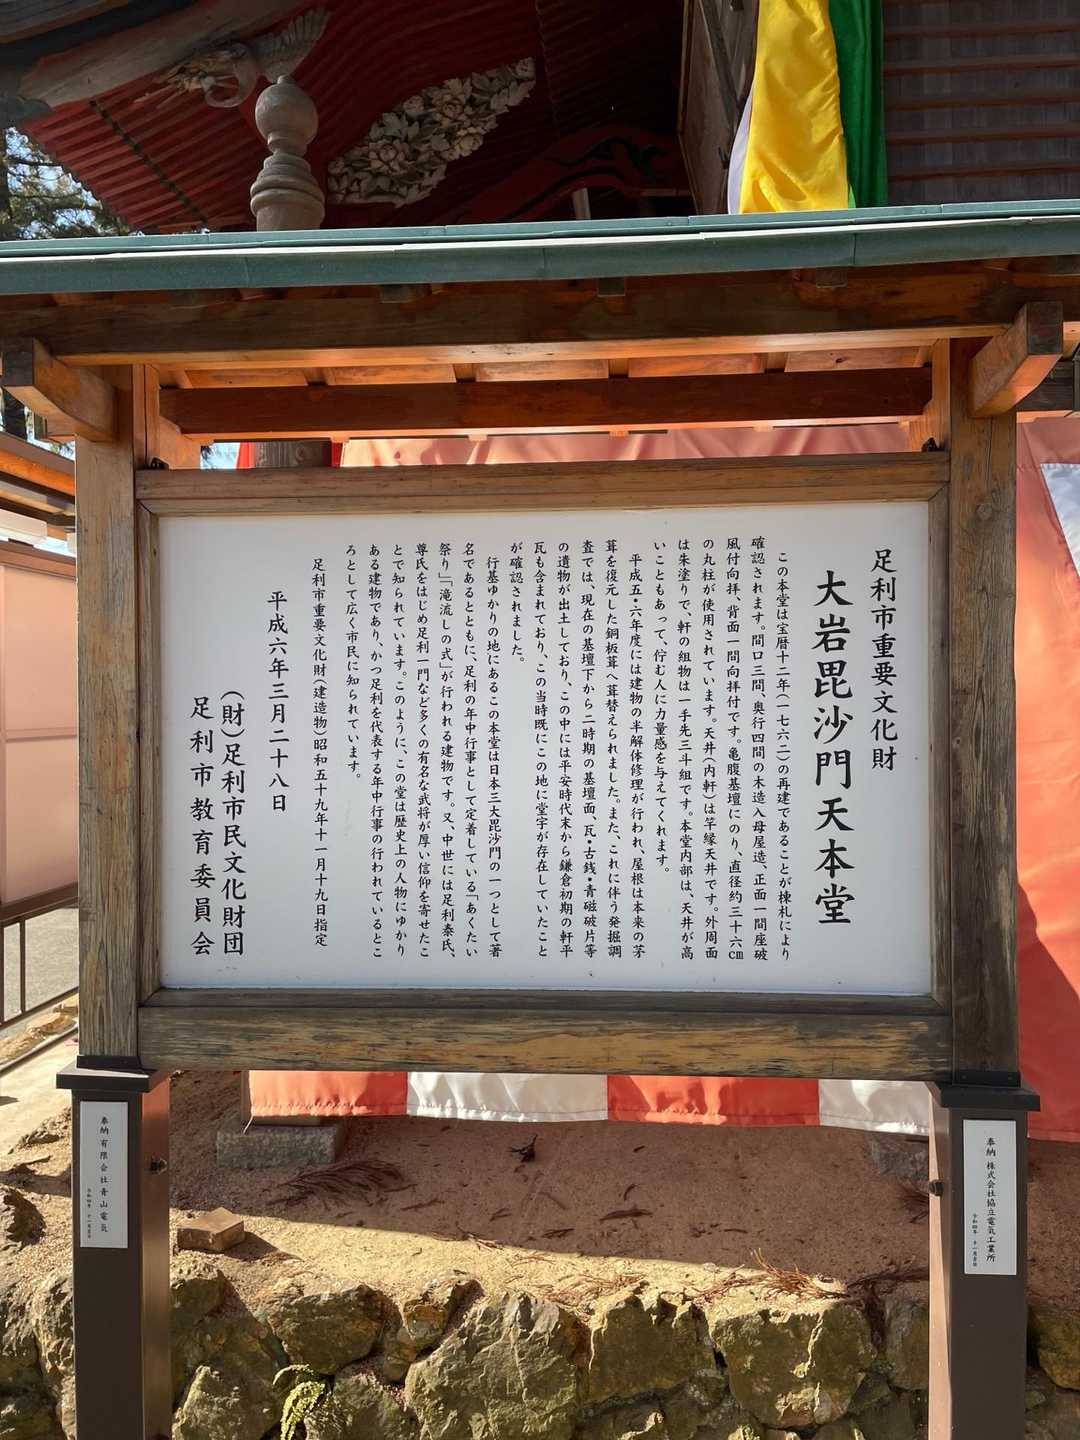 足利市重要文化財
大岩毘沙門天本堂
この本堂は宝暦十二年(一七六二)の再建であることが棟札により
確認されます。間口三間、奥行四間の木造入母屋造、正面一間唐破
風付向拝、背面一間向拝付です。亀腹基壇にのり、直径約三十六cm
の丸柱が使用されています。天井(内軒)は竿縁天井です。外周面
は朱塗りで、軒の組物は一手先三斗組です。本堂内部は、天井が高
いこともあって、佇む人に力量感を与えてくれます。
平成五・六年度には建物の半解体修理が行われ、屋根は本来の茅
葺を復元した銅板葺へ葺替えられました。また、これに伴う発掘調
査では、現在の基壇下から二時期の基壇面、瓦・古銭・青磁破片等
の遺物が出土しており、この中には平安時代末から鎌倉初期の軒平
瓦も含まれており、この当時既にこの地に堂宇が存在していたこと
が確認されました。
行基ゆかりの地にあるこの本堂は日本三大毘沙門の一つとして著
名であるとともに、足利の年中行事として定着している「あくたい
祭り」「滝流しの式」が行われる建物です。又、中世には足利泰氏、
尊氏をはじめ足利一門など多くの有名な武将が厚い信仰を寄せたこ
とで知られています。このように、この堂は歴史上の人物にゆかり
ある建物であり、かつ足利を代表する年中行事の行われているとこ
ろとして広く市民に知られています。
足利市重要文化財(建造物)昭和五十九年十一月十九日指定
平成六年三月二十八日
(財)足利市民文化財団
足利市教育委員会
奉納 株式会社協立電気工業所
奉納 有限会社青山電気